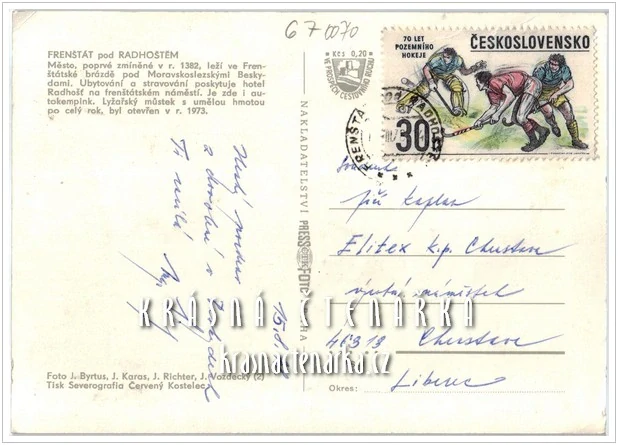 67 0070
FRENŠTÁT pod RADHOŠTĚM
Město, poprvé zmíněné v r. 1382, leží ve Fren-
štátské brázdě pod Moravskoslezskými Besky-
dami. Ubytování a stravování poskytuje hotel
Radhošť na frenštátském náměstí. Je zde i au-
tokempink. Lyžařský můstek s umělou hmotou
po celý rok, byl otevřen v r. 1973.
Kčs 0,20
VE PROSPĚCH CESTOVNÍHO RUCHU
70 LET
POZEMNÍHO
HOKEJE
ČESKOSLOVENSKO
30h
NAKLADATELSTVÍ PRESSFOTO
Jiří Kaplan
Elitex k.p. Chrastava
výrobní náměstek
46313 Chrastava
Liberec
Hezký pozdrav
z dovolené v
KRÁSNÁ ČTENÁRKA
krasnactenarka.cz
Foto J. Byrtus, J. Karas, J. Richter, J. Vozdecký (2)
Tisk Severografia Červený Kostelec
Okres: